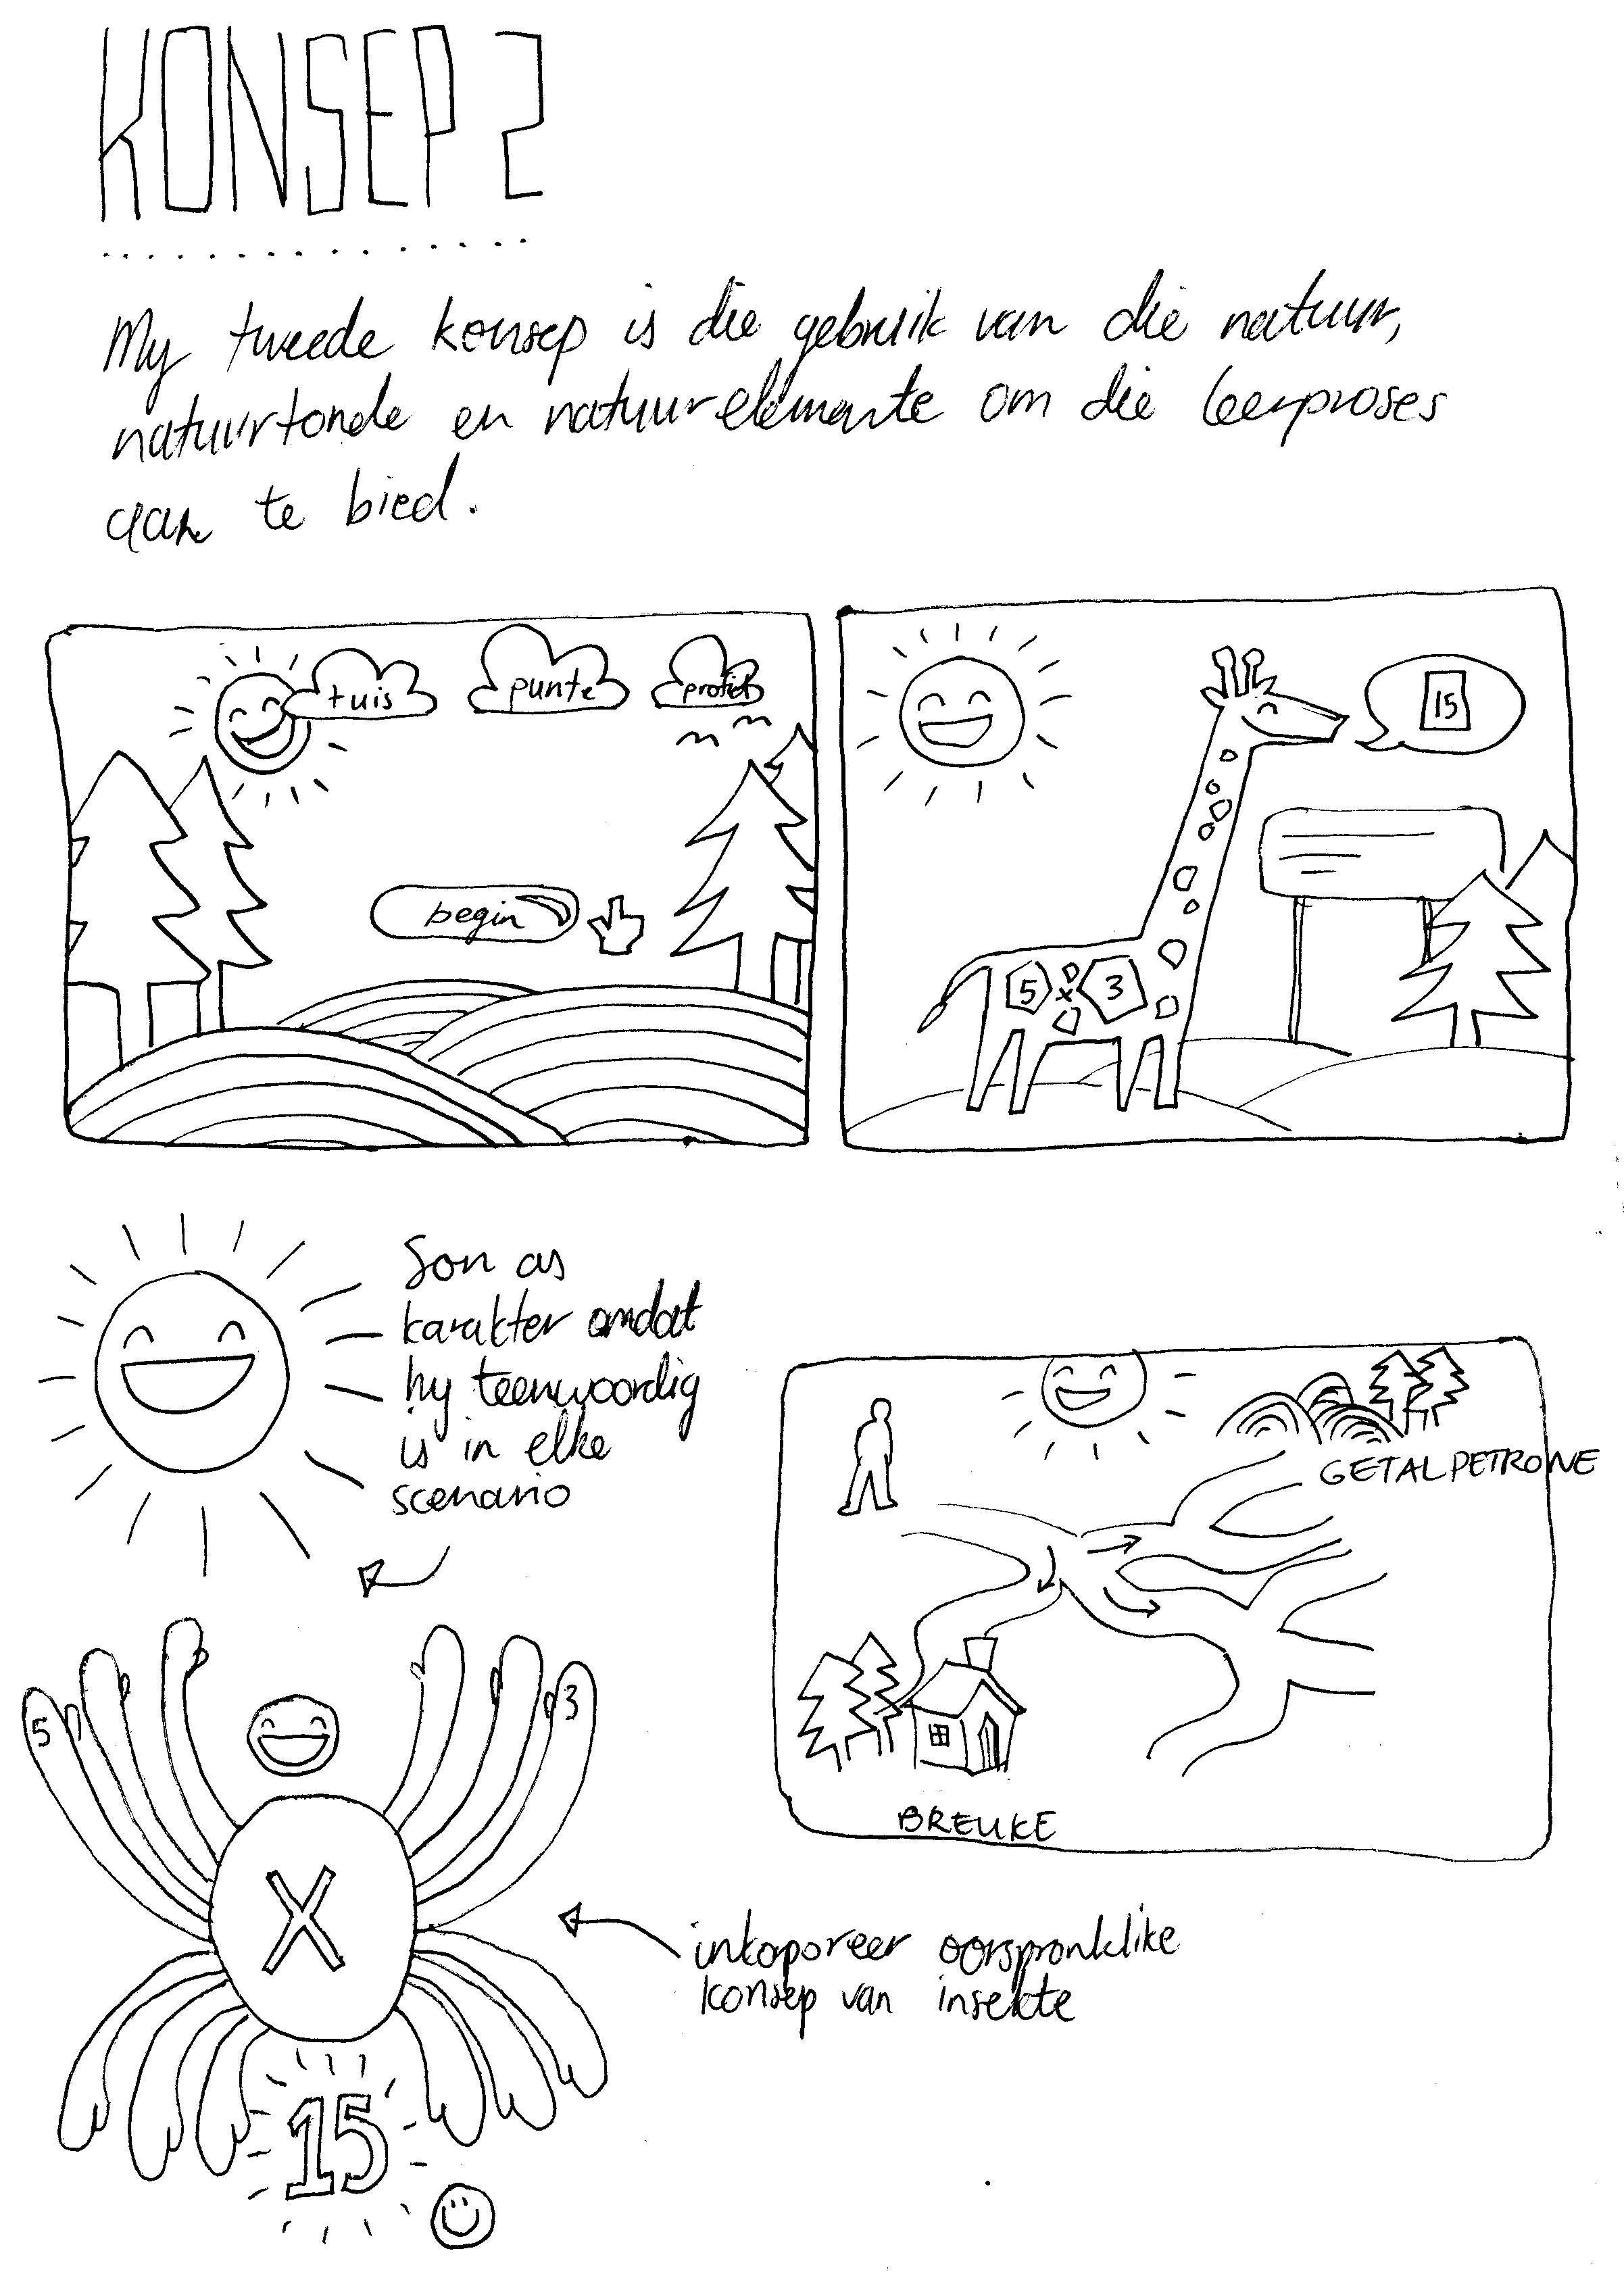 KONSEP 2
My tweede konsep is die gebruik van die natuur,
natuurtonele en natuurelemente om die leerproses
aan te bied.
tuis
punte
profiel
begin
15
5 x 3
Son as
karakter omdat
hy teenwoordig
is in elke
scenario
GETALPETRONE
BREUKE
5
3
X
15
inkoporeer oorspronklike
konsep van insekte